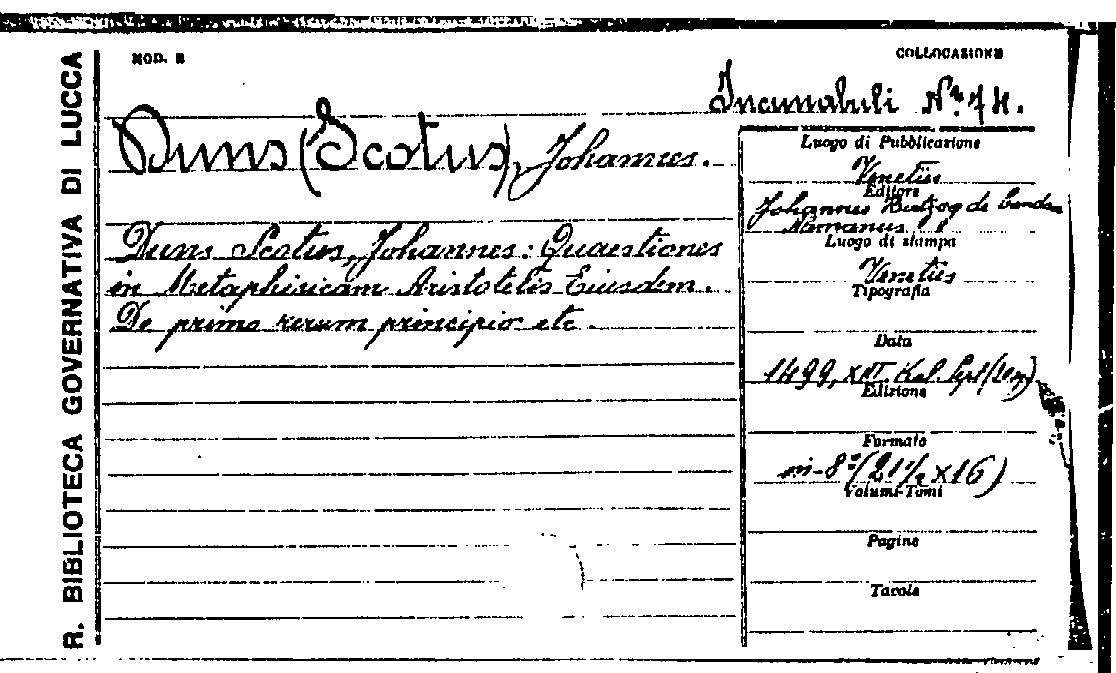 R. BIBLIOTECA GOVERNATIVA DI LUCCA
MOD. B
COLLOCAZIONE
Incunabuli Nº 74.
Duns (Scotus), Johannes.
Duns Scotus, Johannes: Quaestiones
in Metaphisicam Aristotelis Eiusdem.
De primo rerum principio etc.
Luogo di Pubblicazione
Venetiis
Editore
Johannes de
Luogo di stampa
Venetiis
Tipografia
Data
1499, XIII Kal.
Edizione
Formato
in-8º (21½ x 16)
Volumi-Tomi
Pagine
Tavole